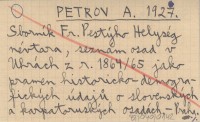 PETROV A. 1927.
Sborník Fr. Pestyho Helység
névtara, seznam osad v
Uhrách z r. 1864/65 jako
pramen historicko-demogra-
fických údajů o slovenských
a karpatoruských osadách - Praha.